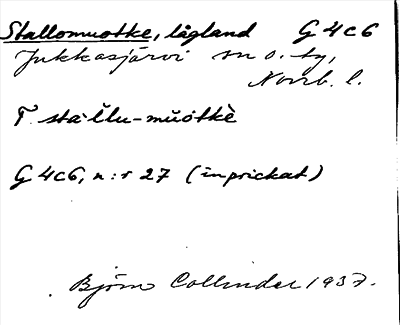 Stallomuotke, lågland G4c6
Jukkasjärvi sn o. ty,
Norrb. l.
F. sta·l̆lu-mŭòtkè
G4c6, n:r 27 (inprickat)
Björn Collinder 1937.